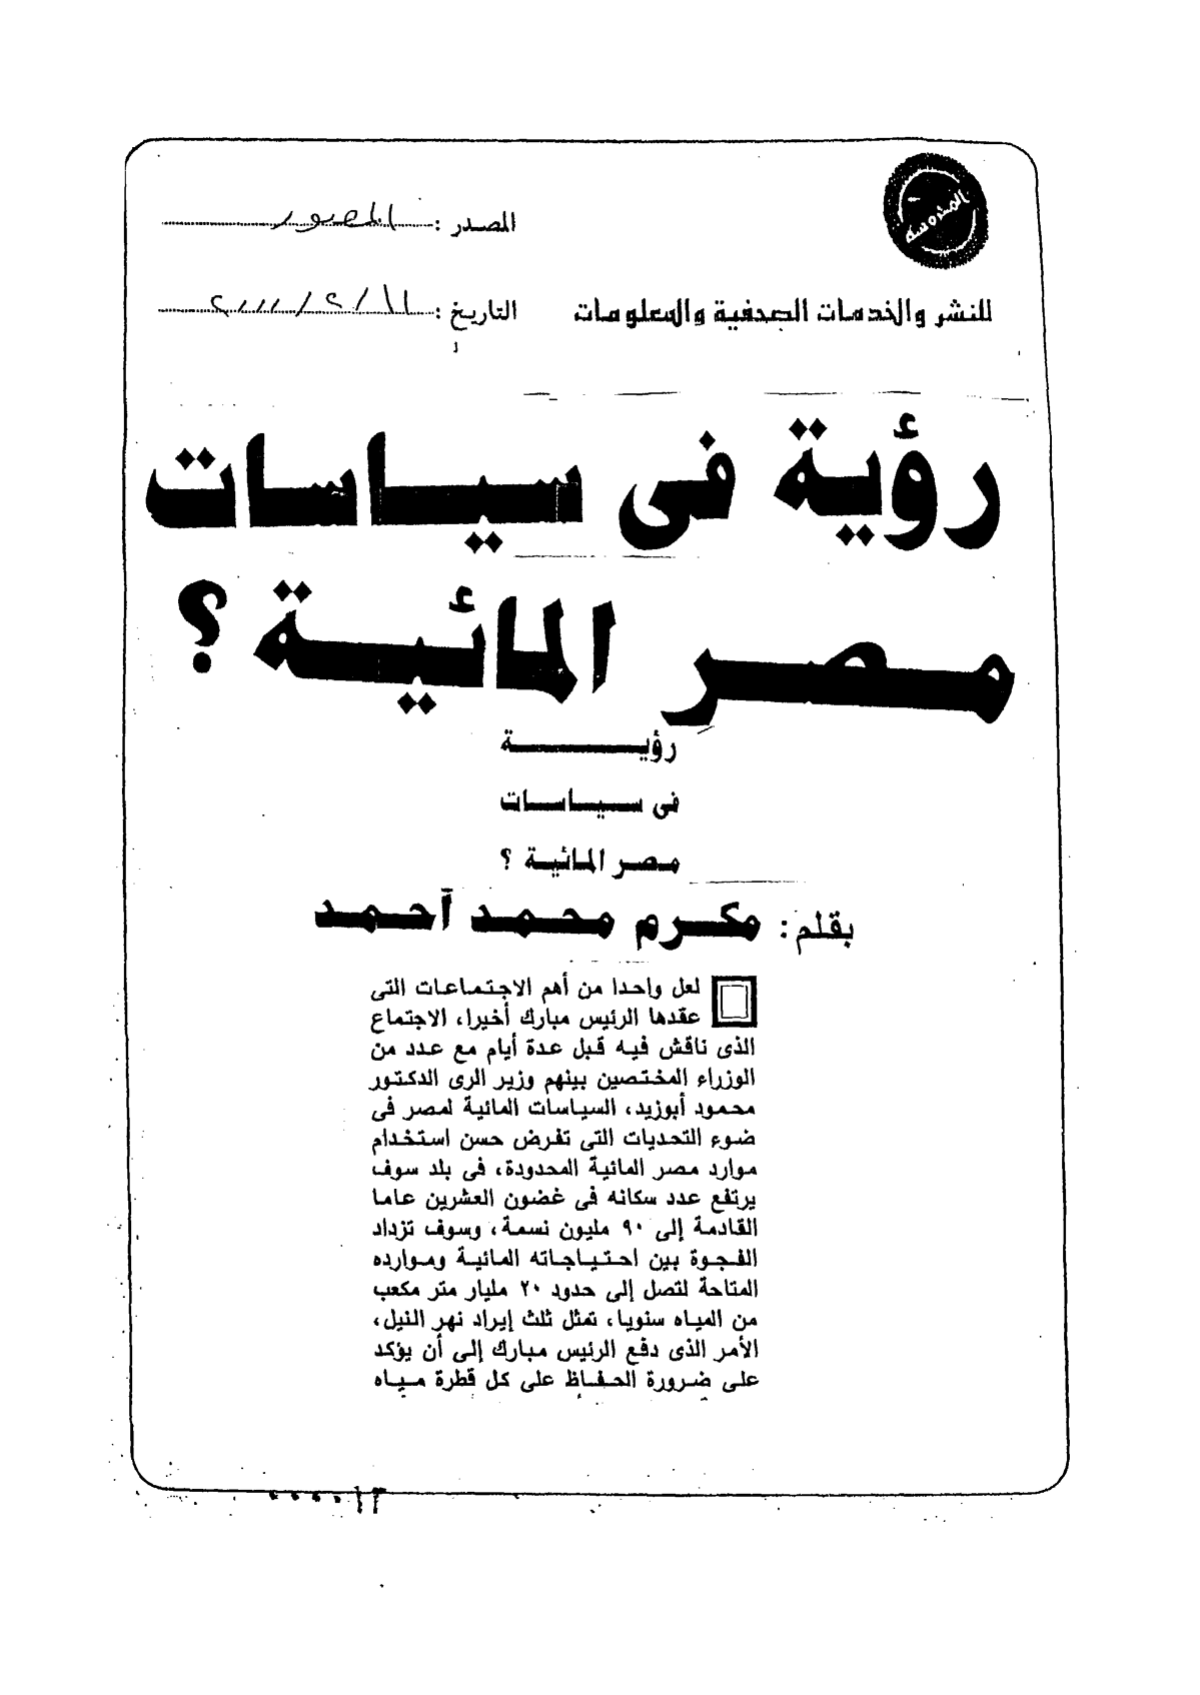 المحروسة
المصدر : المصور
للنشر والخدمات الصحفية والمعلومات
التاريخ : ١١ / ٢ / ٢٠٠٠
رؤية فى سياسات
مصر المائية ؟
رؤيـــة
فى سياسات
مصر المائية ؟
بقلم : مكرم محمد أحمد
لعل واحدا من أهم الاجتماعات التى
عقدها الرئيس مبارك أخيرا، الاجتماع
الذى ناقش فيه قبل عدة أيام مع عدد من
الوزراء المختصين بينهم وزير الرى الدكتور
محمود أبوزيد، السياسات المائية لمصر فى
ضوء التحديات التى تفرض حسن استخدام
موارد مصر المائية المحدودة، فى بلد سوف
يرتفع عدد سكانه فى غضون العشرين عاما
القادمة إلى ٩٠ مليون نسمة، وسوف تزداد
الفجوة بين احتياجاته المائية وموارده
المتاحة لتصل إلى حدود ٢٠ مليار متر مكعب
من المياه سنويا، تمثل ثلث إيراد نهر النيل،
الأمر الذى دفع الرئيس مبارك إلى أن يؤكد
على ضرورة الحفاظ على كل قطرة مياه